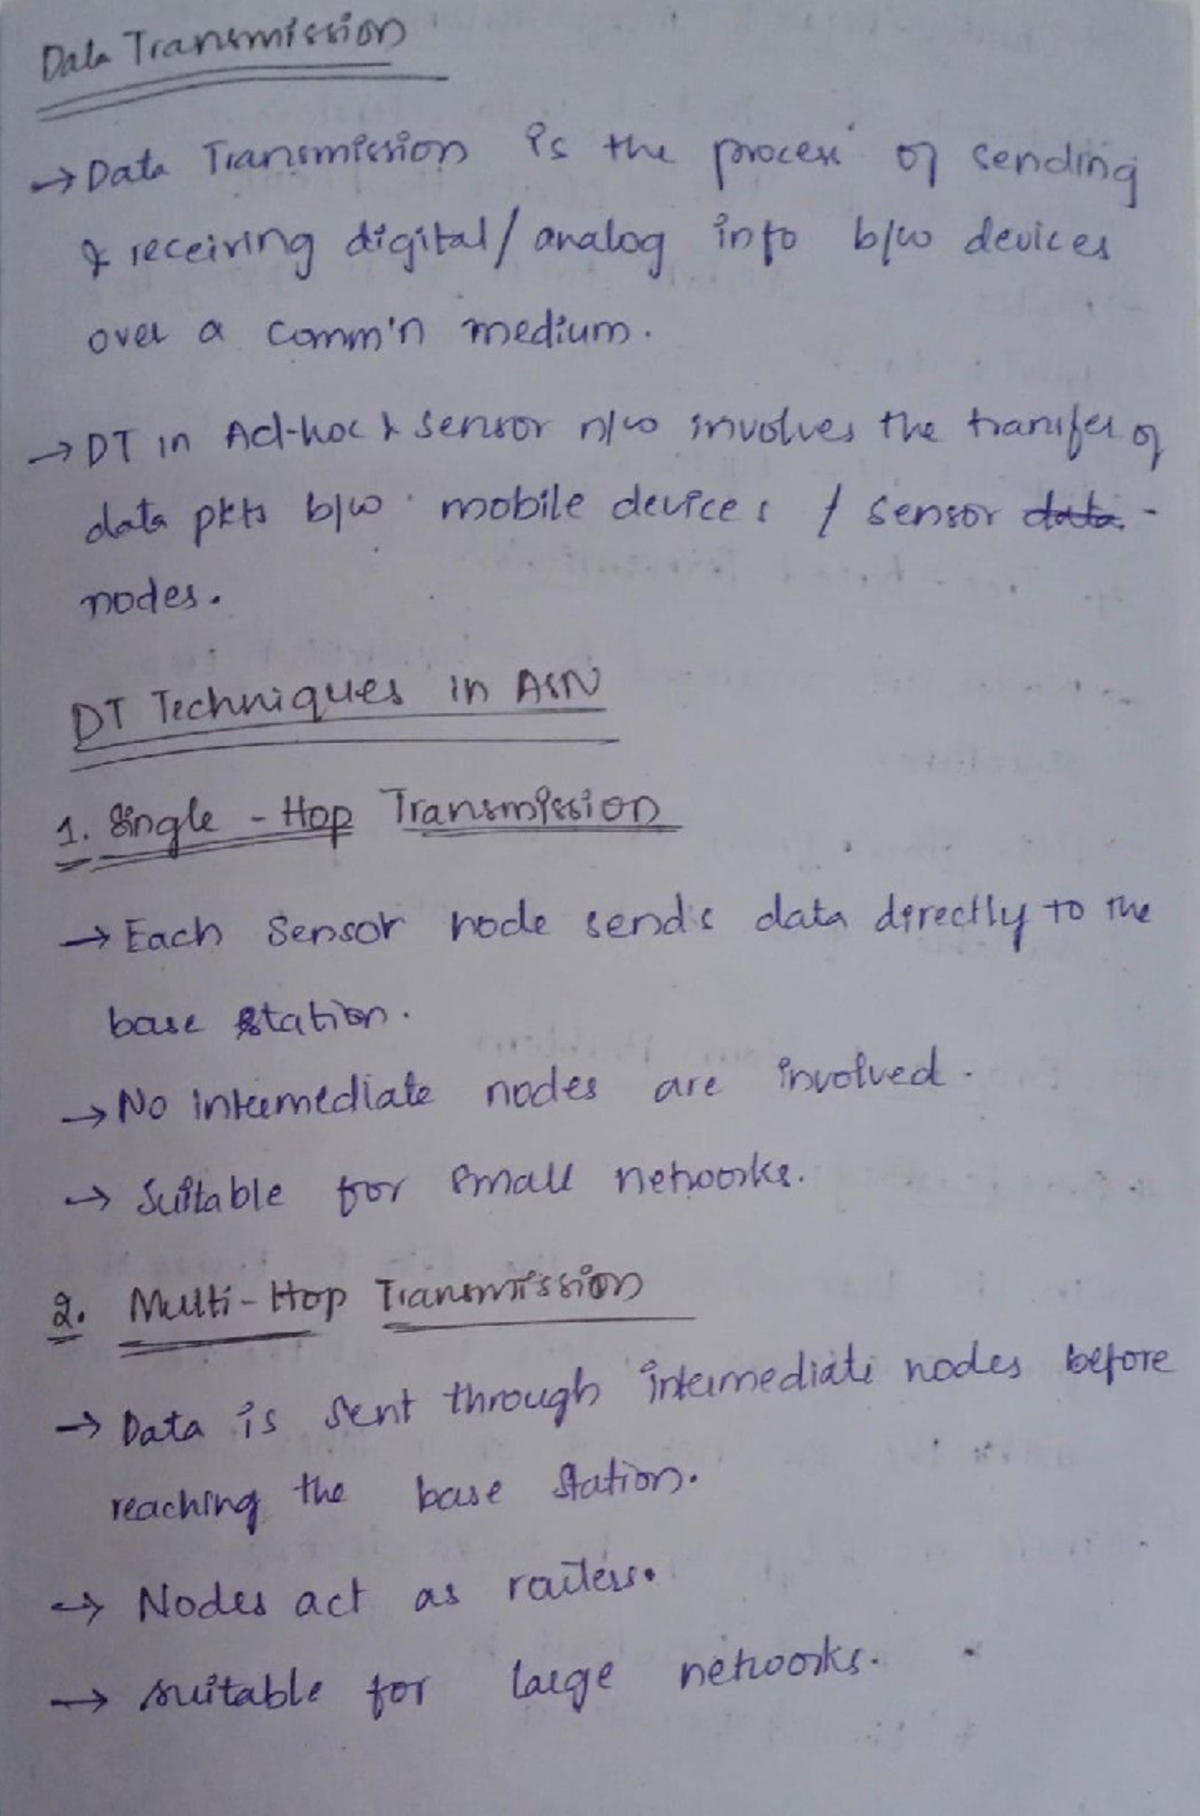 Data Transmission
→ Data Transmission is the process of sending
& receiving digital/analog info b/w devices
over a comm'n medium.
→ DT in Ad-hoc & Sensor n/w involves the transfer of
data pkts b/w mobile devices / sensor data -
nodes.
DT Techniques in ASN
1. Single - Hop Transmission
→ Each Sensor node sends data directly to the
base station.
→ No intermediate nodes are involved.
→ Suitable for small networks.
2. Multi-Hop Transmission
→ Data is sent through intermediate nodes before
reaching the base station.
→ Nodes act as routers.
→ suitable for large networks.